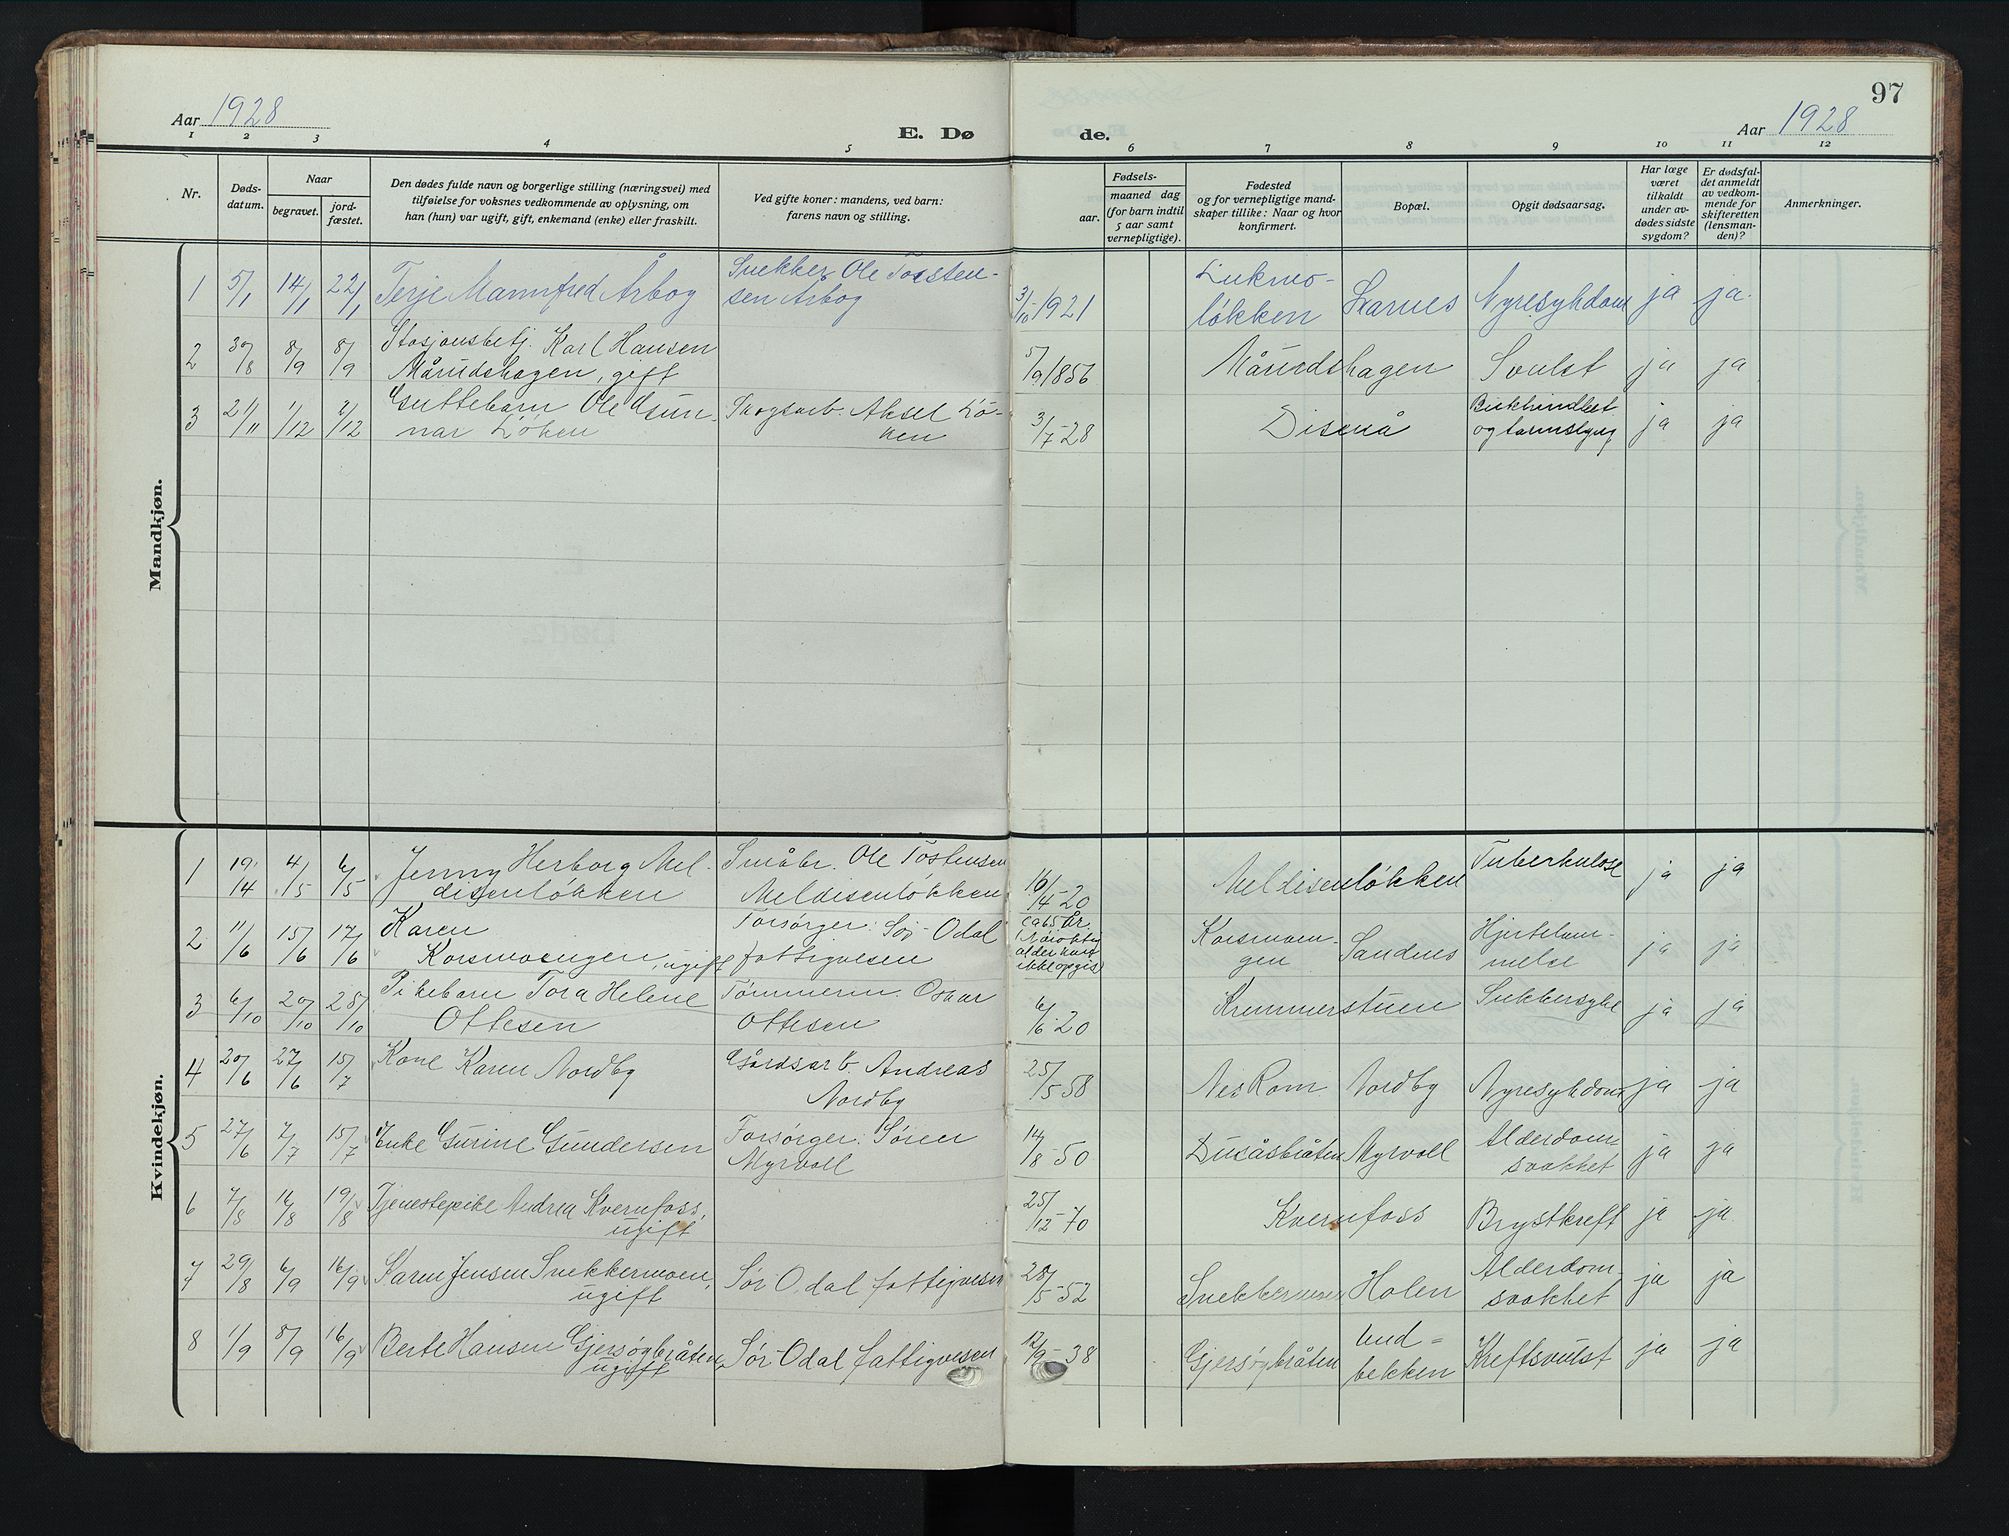 97
Aar 1928
E. Dø
de.
Aar 1928
1 2 3 4 5 6 7 8 9 10 11 12
Nr.
Døds-
datum.
Naar
begravet.
jord-
fæstet.
Den dødes fulde navn og borgerlige stilling (næringsvei) med
tilføielse for voksnes vedkommende av oplysning, om
han (hun) var ugift, gift, enkemand (enke) eller fraskilt.
Ved gifte koner: mandens, ved barn:
farens navn og stilling.
Fødsels-
aar.
maaned dag
(for barn indtil
5 aar samt
vernepligtige).
Fødested
og for vernepligtige mand-
skaper tillike: Naar og hvor
konfirmert.
Bopæl.
Opgit dødsaarsag.
Har læge
været
tilkaldt
under av-
dødes sidste
sygdom?
Er dødsfal-
det anmeldt
av vedkom-
mende for
skifteretten
(lensman-
den)?
Anmerkninger.
Mandkjøn.
1 5/1 14/1 22/1 Terje Mannfred Årbog
Snekker Ole Tosten-
sen Årbog
3/10-1921
løkken
Skarnes Nyresykdom ja ja.
2 30/8 8/9 8/9 Stasjonsbetj. Karl Hansen
Mårudshagen, gift
5/9 1856 Mårudshagen Svulst ja ja
3 21/11 1/12 2/12 Guttebarn Ole Gun-
nar Løken
Skogsarb. Aksel Lø-
ken
3/7-28 Disenå
og tarmslyng ja ja
Kvindekjøn.
1 19/14 4/5 6/5 Jenny Herborg Mel-
disenløkken
Småbr. Ole Tostensen
Meldisenløkken
16/14-20 Meldisenløkken Tuberkulose ja ja
2 11/6 15/6 17/6 Karen
Korsmoengen, ugift
Forsørger: Sør-Odal
fattigvesen
ca 65 år.
(Nøiaktig
alder kunt
ikke opgis)
Korsmoen-
gen
Sandnes
Hjertelam-
melse
ja ja
3 6/10 20/10 28/10 Pikebarn Tora Helene
Ottesen
Tømmerm. Oskar
Ottesen
6/6-20 Kremmerstuen Sukkersyke ja ja
4 20/6 27/6 15/7 Kone Karen Nordby
Gårdsarb. Andreas
Nordby
25/5 58 Nes Rom Nordby Nyresykdom ja ja
5 27/6 7/7 15/7 Enke Gurine Gundersen
Forsørger: Søren
Myrvoll
14/8-50 Dusåsbråten Myrvoll
Alderdom-
svakhet
ja ja
6 7/8 16/8 19/8 Tjenestepike Andrea Kvernfoss,
ugift
25/12-70 Kvernfoss Brystkreft ja ja.
7 29/8 6/9 16/9 Karen Jensen Snekkermoen,
ugift
Sør Odal fattigvesen
28/5-52 Snekkermoen Holen
Alderdom-
svakhet
ja ja
8 1/9 8/9 16/9 Berte Hansen Gjersøybråten
ugift
Sør-Odal fattigvesen
12/9-38 Gjersøybråten
Lund=
bekken
Kreftsvulst ja ja